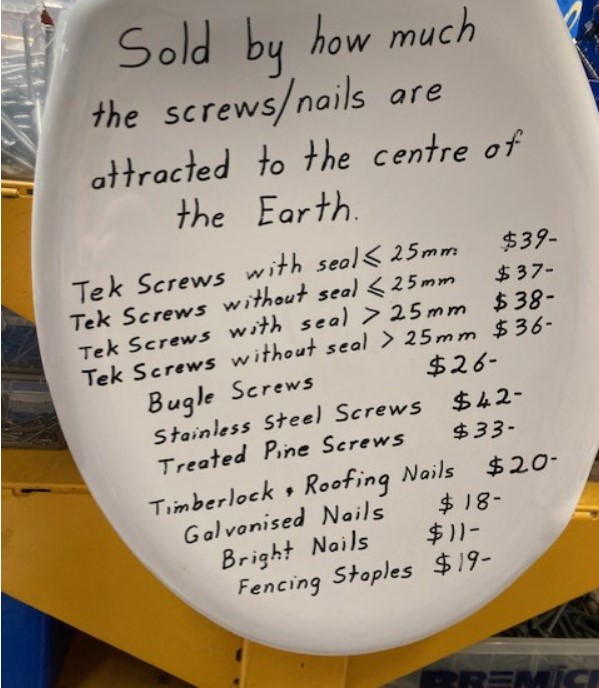 Sold by how much
the screws/nails are
attracted to the centre of
the Earth.
Tek Screws with seal ≤ 25mm $39-
Tek Screws without seal ≤ 25mm $37-
Tek Screws with seal > 25mm $38-
Tek Screws without seal > 25mm $36-
Bugle Screws $26-
Stainless Steel Screws $42-
Treated Pine Screws $33-
Timberlock & Roofing Nails $20-
Galvanised Nails $18-
Bright Nails $11-
Fencing Staples $19-